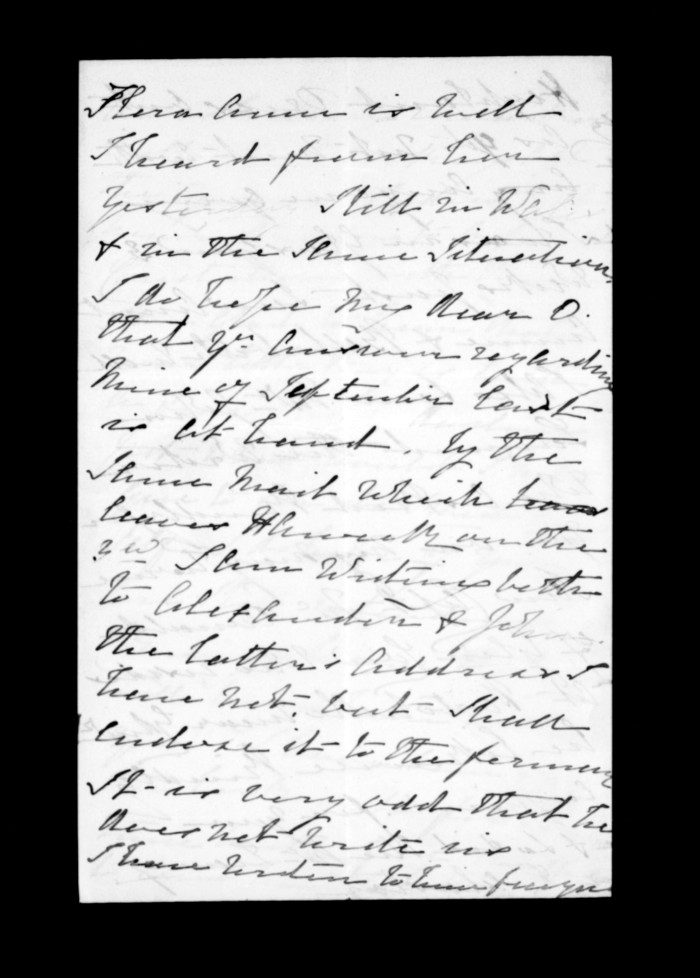 Flora Anne is well
I heard from her
yesterday Still in Wa
& in the Same Situation.
I do hope my dear D.
that yr. answer regarding
mine of September last
is at hand. By the
Same mail which
leaves on the
3rd I am writing both
to Alexander & John.
the latter's address I
have not, but Shall
enclose it to the former
It is very odd that he
does not write us
I have written to him